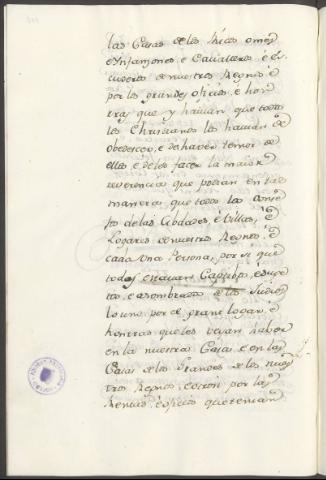 las Casas de los Ricos omes
e Infanzones e Cavalleros e es
cuderos de nuestros Regnos e
por los grandes oficios e hon
rras que y havian que todos
los Christianos los havian de
obedescer, e de haver temor de
ellos e de les facer la maior
reverencia que podian en tal
manera, que todos los Conse
jos de las Cibdades e Villas, e
Logares de nuestros Regnos, e
cada una Persona por si que
todos estavan Captivos, e suge
tos, e asombrados de los Judios
lo uno por el grant logar, e
honrras que les veyan haber
en la nuestra Casa, e en las
Casas de los Grandes de los nues
tros Regnos, e otrosi por las
Rentas, e oficios que tenian